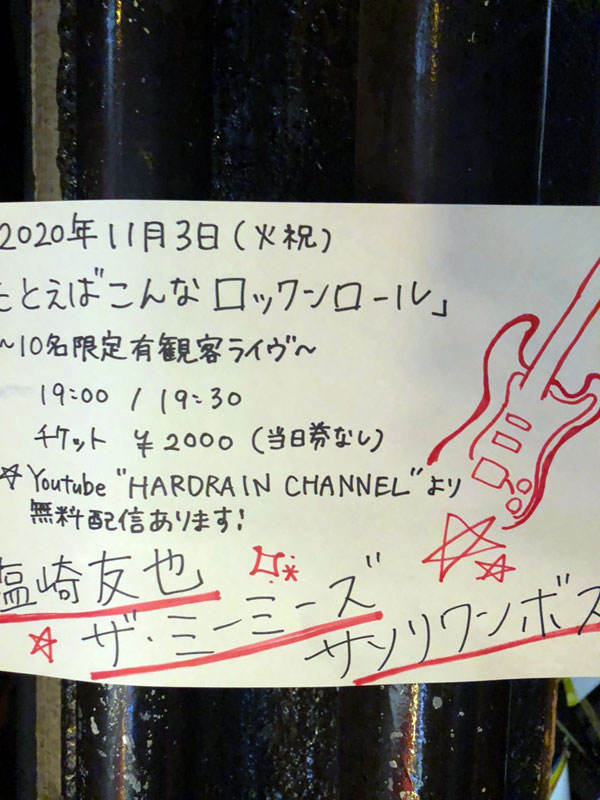 2020年11月3日(火祝)
たとえばこんなロックンロール」
～10名限定有観客ライヴ～
19:00 / 19:30
チケット ¥2000 (当日券なし)
☆ Youtube "HARDRAIN CHANNEL" より
無料配信あります!
塩崎友也
ザ・ミーミーズ
サンリワンボス